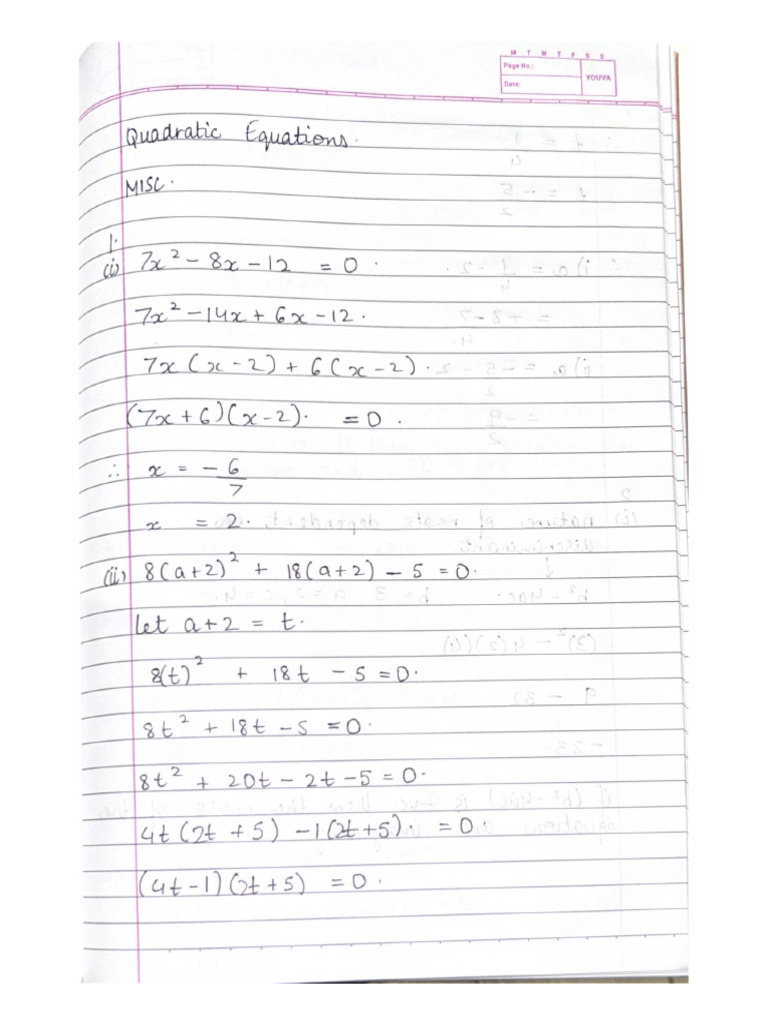 M T W T F S S
Page No.:
YOUVA
Date:
Quadratic Equations.
MISC.
1.
(i) 7x² - 8x - 12 = 0.
7x² - 14x + 6x - 12.
7x (x - 2) + 6 (x - 2).
(7x + 6) (x - 2). = 0.
∴ x = -6/7
x = 2.
(ii) 8(a+2)² + 18(a+2) - 5 = 0.
let a + 2 = t.
8(t)² + 18t - 5 = 0.
8t² + 18t - 5 = 0.
8t² + 20t - 2t - 5 = 0.
4t (2t + 5) - 1 (2t + 5) = 0.
(4t - 1) (2t + 5) = 0.